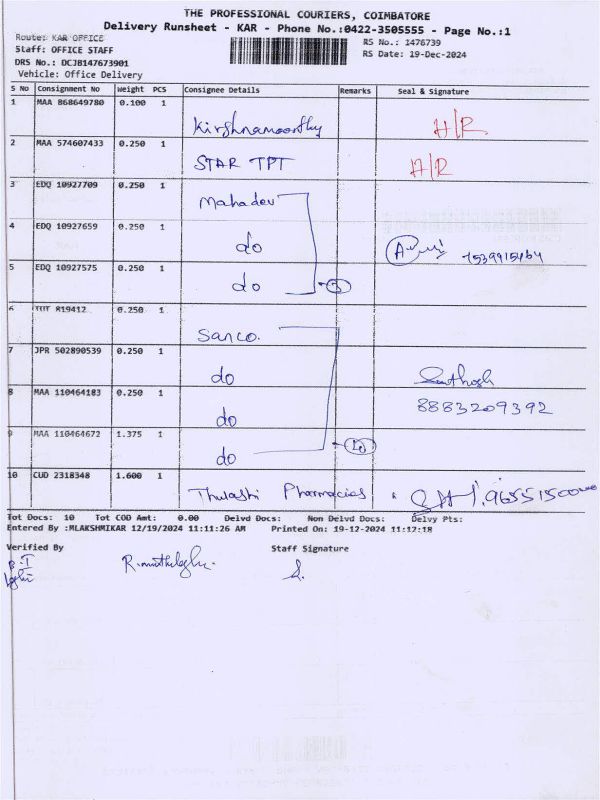 THE PROFESSIONAL COURIERS, COIMBATORE
Delivery Runsheet - KAR - Phone No.:0422-3505555 - Page No.:1
Route: KAR OFFICE
RS No.: 1476739
Staff: OFFICE STAFF
RS Date: 19-Dec-2024
DRS No.: DCJB147673901
Vehicle: Office Delivery
S No Consignment No Weight PCS Consignee Details Remarks Seal & Signature
1 MAA 868649780 0.100 1
Kirshnamoorthy H/R
2 MAA 574607433 0.250 1
STAR TPT H/R
3 EDQ 10927709 0.250 1
Mahadev
4 EDQ 10927659 0.250 1
do
5 EDQ 10927575 0.250 1
do 3
6 TUT 819412 0.250 1
Sanco.
7 JPR 502890539 0.250 1
do
8 MAA 110464183 0.250 1
do 8883209392
9 MAA 110464672 1.375 1
do
10 CUD 2318348 1.600 1
Thulashi Pharmacies
Tot Docs: 10 Tot COD Amt: 0.00 Delvd Docs: Non Delvd Docs: Delvy Pts:
Entered By :MLAKSHMIKAR 12/19/2024 11:11:26 AM Printed On: 19-12-2024 11:12:18
Verified By Staff Signature